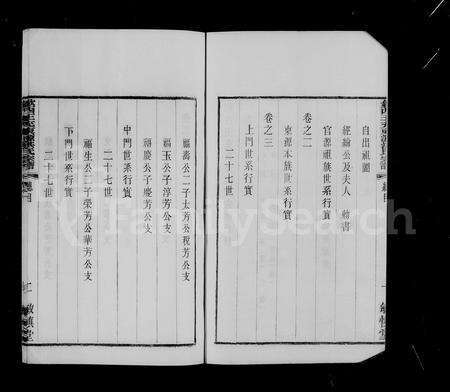 自出祖圖
經綸公及夫人 勅書
卷之二
官源祖族世系行實
東源本族世系行實
卷之三
上門世系行實
二十七世
福壽公二子太芳公稅芳公支
福慶公子慶芳公支
福玉公子淳芳公支
中門世系行實
二十七世
福生公二子榮芳公華芳公支
下門世系行實
二十七世
總目
敬慎堂
FamilySearch